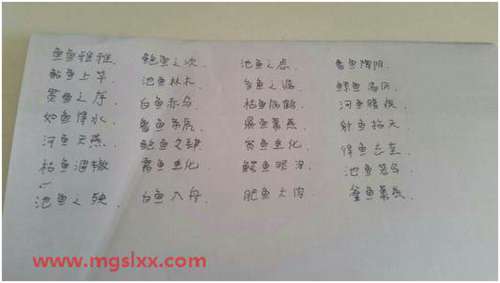 鱼鱼雅雅. 鲍鱼之次. 池鱼之虑. 鲁鱼陶阴.
鲇鱼上竿. 池鱼林木. 多鱼之漏. 鲸鱼
贯鱼之序. 白鱼赤乌. 枯鱼 河鱼腹疾.
如鱼得水. 鲁鱼帝虎. 梁鱼幕燕. 射鱼指天.
河鱼天雁. 鲍鱼之肆. 鱼变化. 得鱼忘荃.
枯鱼涸辙. 鱼变化. 鳏鱼 池鱼笼鸟.
池鱼之殃. 白鱼入舟. 肥鱼大肉. 釜鱼幕燕.
www.mgslxx.com